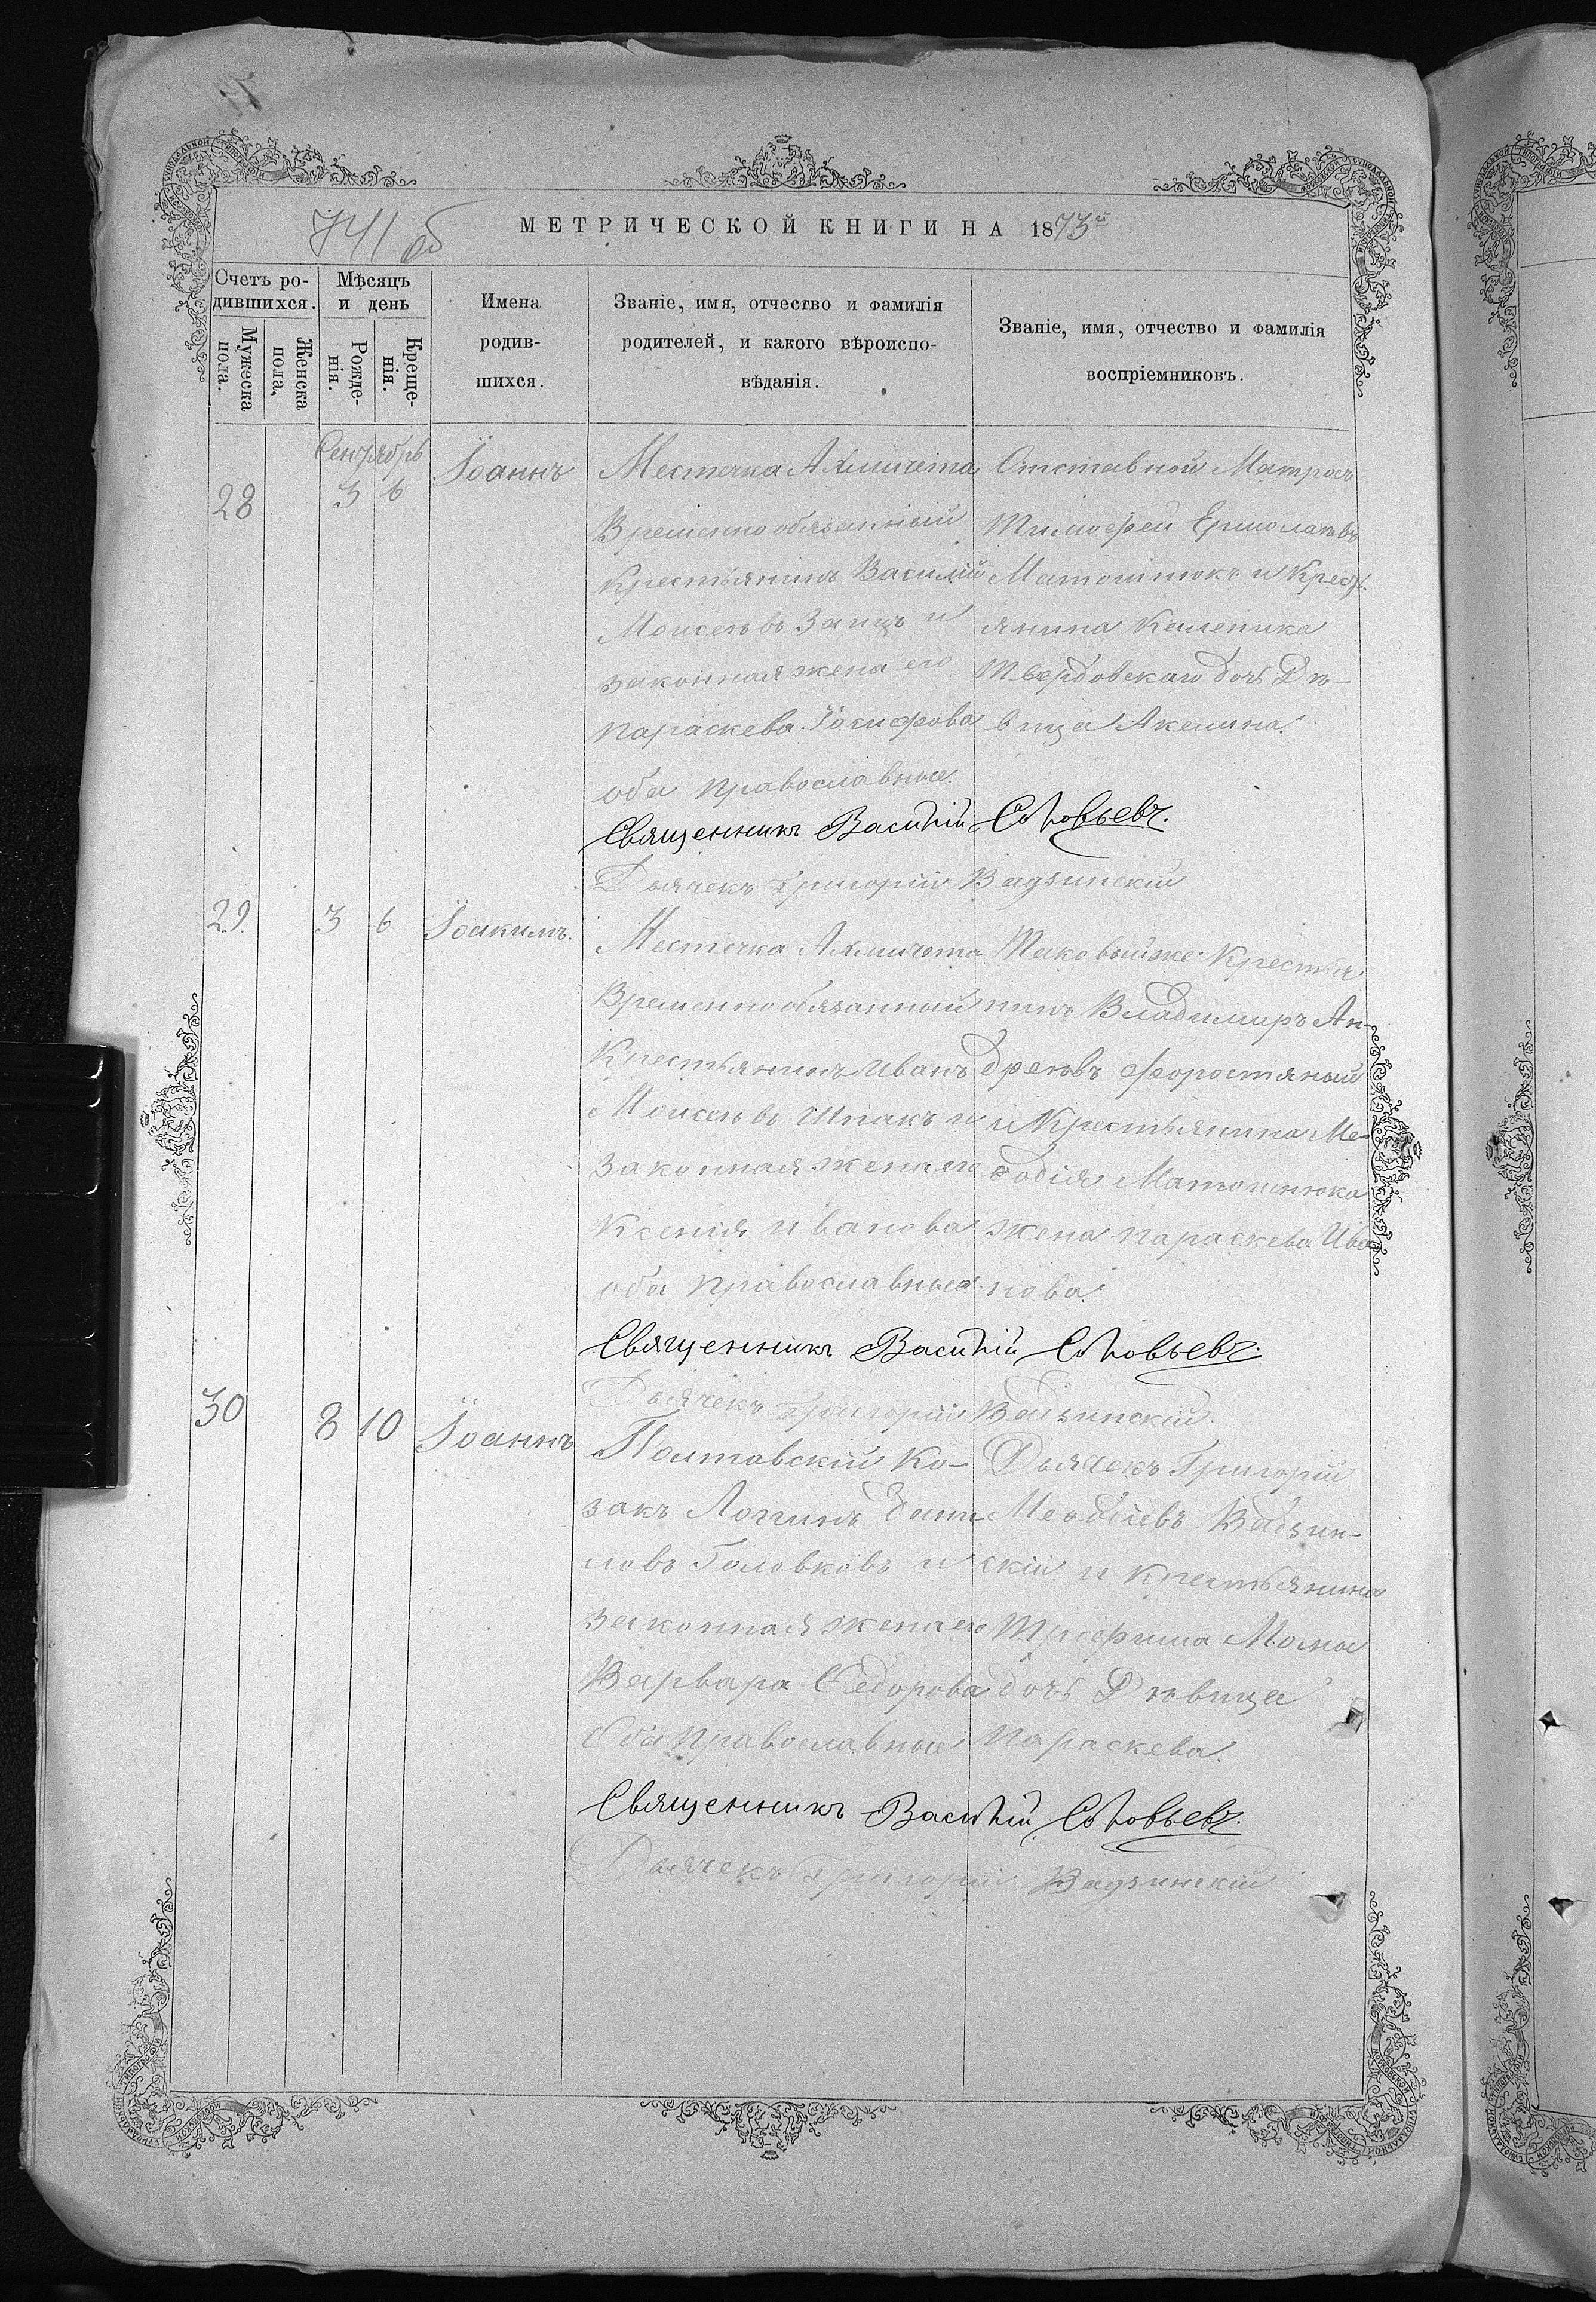 741 об
МЕТРИЧЕСКОЙ КНИГИ НА 1873й
Счетъ ро-
дившихся.
Мужеска
пола.
Женска
пола,
Мѣсяцъ
и день
Рожде-
нія.
Креще-
нія.
Имена
родив-
шихся.
Званіе, имя, отчество и фамилія
родителей, и какого вѣроиспо-
вѣданія.
Званіе, имя, отчество и фамилія
воспріемниковъ.
Сентябрь
28
3 6
Іоаннъ
Местечка Ахмичета
Временнообязанный
Крестьянинъ Василій
Моисеевъ Заицъ и
законная жена его
Параскева Іосифова
оба православные.
Отставной Матросъ
Тимофей Ермолаевъ
Матошнюкъ и Крест.
янина Каленика
Твердовскаго дочь Дѣ-
вица Акилина.
Священникъ Василій Соловьевъ.
Дьячекъ Григорій Вадзинскій
29.
3 6
Іоакимъ.
Местечка Ахмичета
Временнообязанный
Крестьянинъ Иванъ
Моисеевъ Шпакъ и
законная жена его
Ксенія Иванова
оба православные
Таковый же Крестья
нинъ Владимиръ Ан-
дреевъ Форостяный
и Крестьянина Ме-
ѳодія Матошнюка
жена Параскева Ива
нова.
Священникъ Василій Соловьевъ.
Дьячекъ Григорій Вадзинскій.
30
8 10
Іоаннъ
Полтавскій Ко-
закъ Логгинъ Дани-
ловъ Головковъ и
законная жена его
Варвара Ѳедорова
Оба православные
Дьячекъ Григорій
Меѳодіевъ Вадзин-
скій и Крестьянина
Трофима Момы
дочь Дѣвица
Параскева.
Священникъ Василій Соловьевъ.
Дьячекъ Григорій Вадзинскій